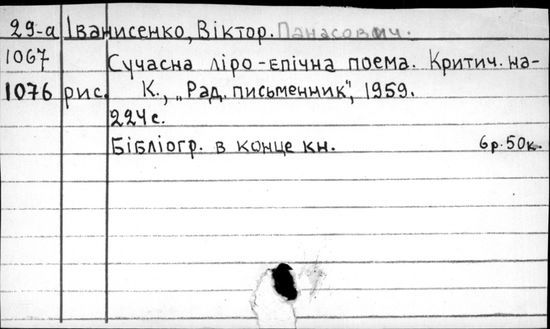 29-а Іванисенко, Віктор. Панасович.
1067 Сучасна ліро-епічна поема. Критич. на-
1076 рис. К., „Рад. письменник", 1959.
224 с.
Бібліогр. в конце кн. 6р.50к.